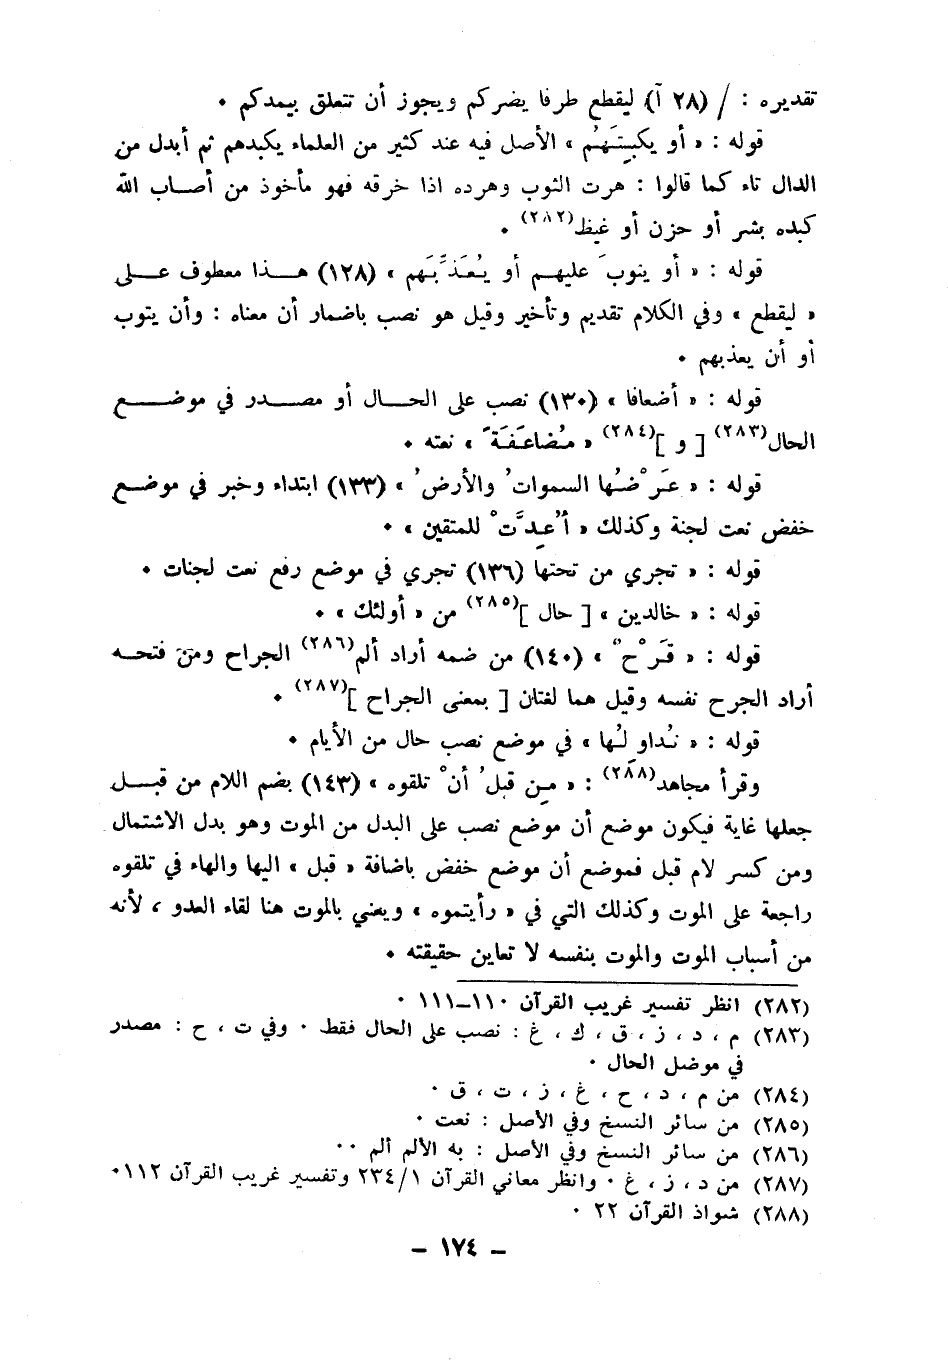 تقديره : / (٢٨ آ) ليقطع طرفا يضركم ويجوز أن تتعلق بيمدكم ٠
قوله : « أو يكبِتَهُم » الأصل فيه عند كثير من العلماء يكبدهم ثم أبدل من
الدال تاء كما قالوا : هرت الثوب وهرده اذا خرقه فهو مأخوذ من أصاب الله
كبده بشر أو حزن أو غيظ(٢٨٢) ٠
قوله : « أو يتوبَ عليهم أو يُعَذِّبَهم » (١٢٨) هذا معطوف على
« ليقطع » وفي الكلام تقديم وتأخير وقيل هو نصب باضمار أن معناه : وأن يتوب
أو أن يعذبهم ٠
قوله : « أضعافا » (١٣٠) نصب على الحال أو مصدر في موضع
الحال(٢٨٣) [ و ](٢٨٤) « مُضاعَفَةً » نعته ٠
قوله : « عَرْضُها السموات ُ والأرض ُ » (١٣٣) ابتداء وخبر في موضع
خفض نعت لجنة وكذلك « أُعِدَّتْ للمتقين » ٠
قوله : « تجري من تحتها (١٣٦) تجري في موضع رفع نعت لجنات ٠
قوله : « خالدين » [ حال ](٢٨٥) من « أولئك » ٠
قوله : « قَرْحٌ » (١٤٠) من ضمه أراد ألم(٢٨٦) الجراح ومن فتحه
أراد الجرح نفسه وقيل هما لغتان [ بمعنى الجراح ](٢٨٧) ٠
قوله : « نُداوِلُها » في موضع نصب حال من الأيام ٠
وقرأ مجاهد(٢٨٨) : « مِن قبلُ أنْ تلقوه » (١٤٣) بضم اللام من قبل
جعلها غاية فيكون موضع أن موضع نصب على البدل من الموت وهو بدل الاشتمال
ومن كسر لام قبل فموضع أن موضع خفض باضافة « قبل » اليها والهاء في تلقوه
راجعة على الموت وكذلك التي في « رأيتموه » ويعني بالموت هنا لقاء العدو ، لأنه
من أسباب الموت والموت بنفسه لا تعاين حقيقته ٠
(٢٨٢) انظر تفسير غريب القرآن ١١٠–١١١ ٠
(٢٨٣) م ، د ، ز ، ق ، ك ، غ : نصب على الحال فقط ٠ وفي ت ، ح : مصدر
في موضل الحال ٠
(٢٨٤) من م ، د ، ح ، غ ، ز ، ت ، ق ٠
(٢٨٥) من سائر النسخ وفي الأصل : نعت ٠
(٢٨٦) من سائر النسخ وفي الأصل : به الألم ألم ٠٠
(٢٨٧) من د ، ز ، غ ٠ وانظر معاني القرآن ٢٣٤/١ وتفسير غريب القرآن ١١٢٠
(٢٨٨) شواذ القرآن ٢٢ ٠
– ١٧٤ –